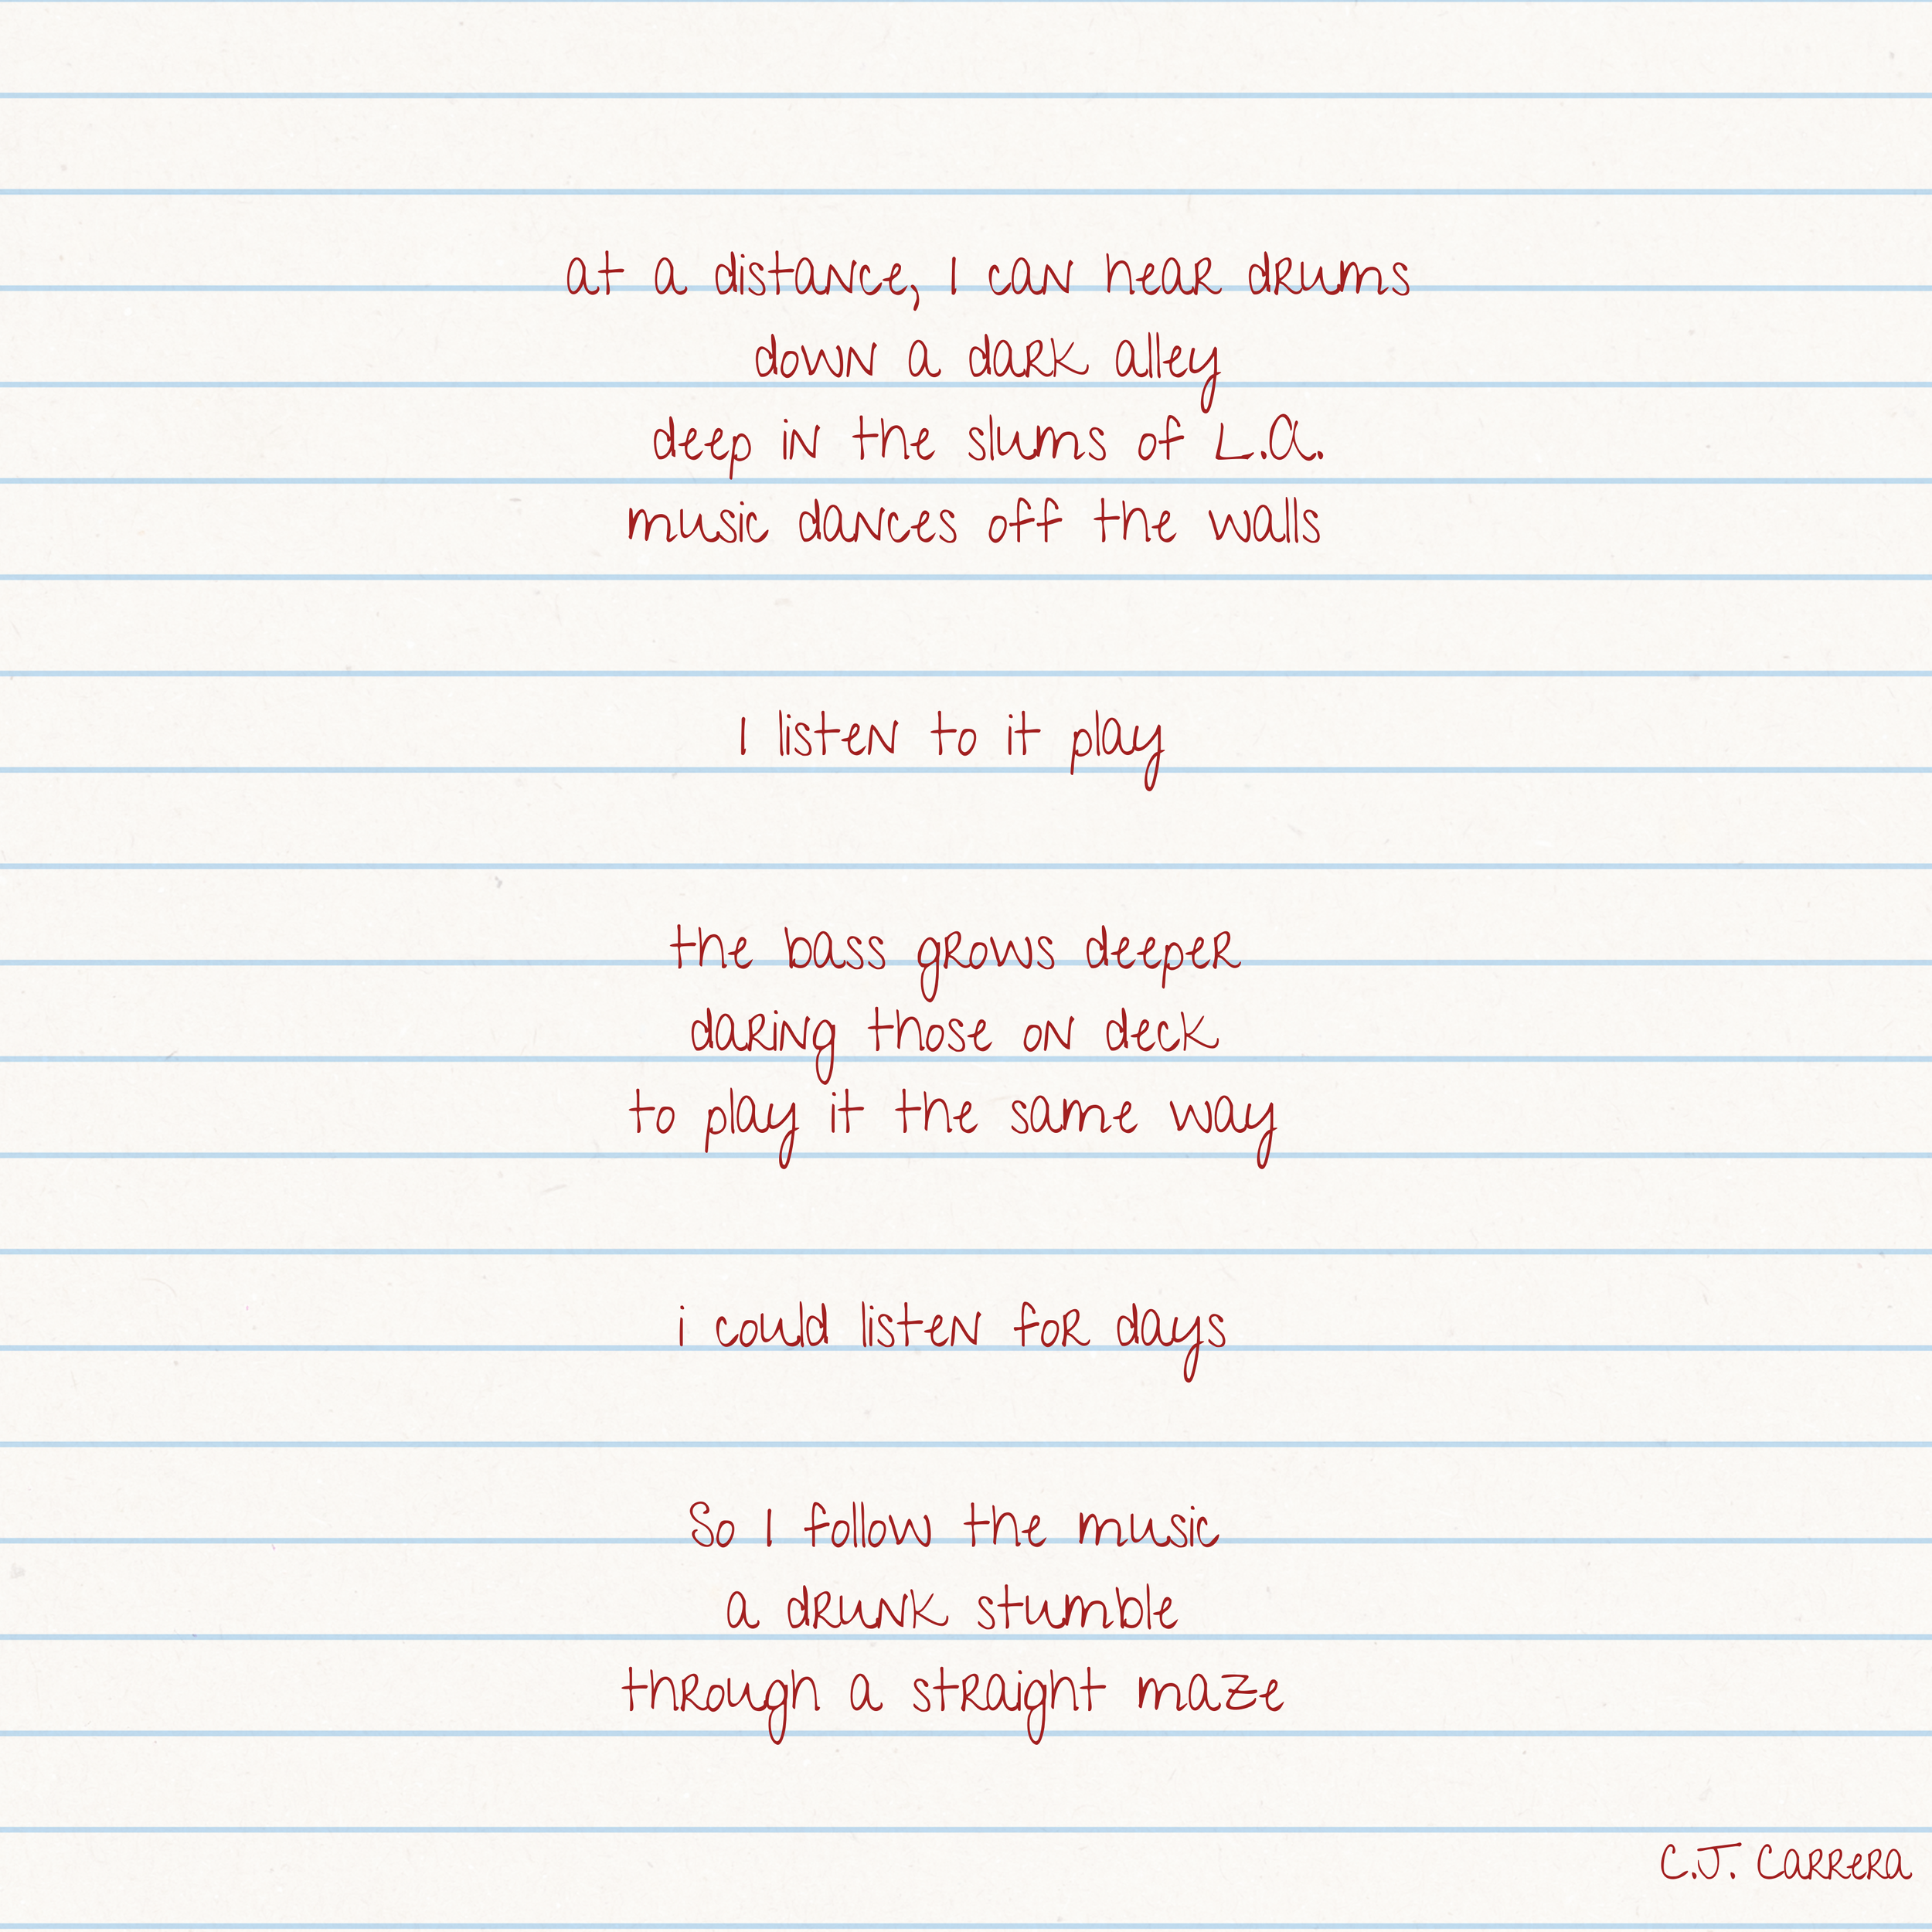 at a distance, I can hear drums
down a dark alley
deep in the slums of L.A.
music dances off the walls
I listen to it play
the bass grows deeper
daring those on deck
to play it the same way
i could listen for days
So I follow the music
a drunk stumble
through a straight maze
C.J. Carrera